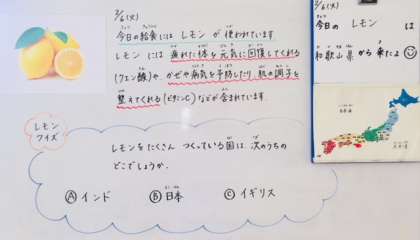 2/6(火)
今日の給食には レモン が 使われています。
レモン には 疲れた体を元気に回復してくれる
(クエン酸)や、かぜや病気を予防したり、肌の調子を
整えてくれる(ビタミンC)などが含まれています。
レモン
クイズ
レモンをたくさん つくっている国は、次のうちの
どこでしょうか。
Ⓐ インド Ⓑ 日本 Ⓒ イギリス
2/6(火)
今日の レモン は
和歌山県から来たよ